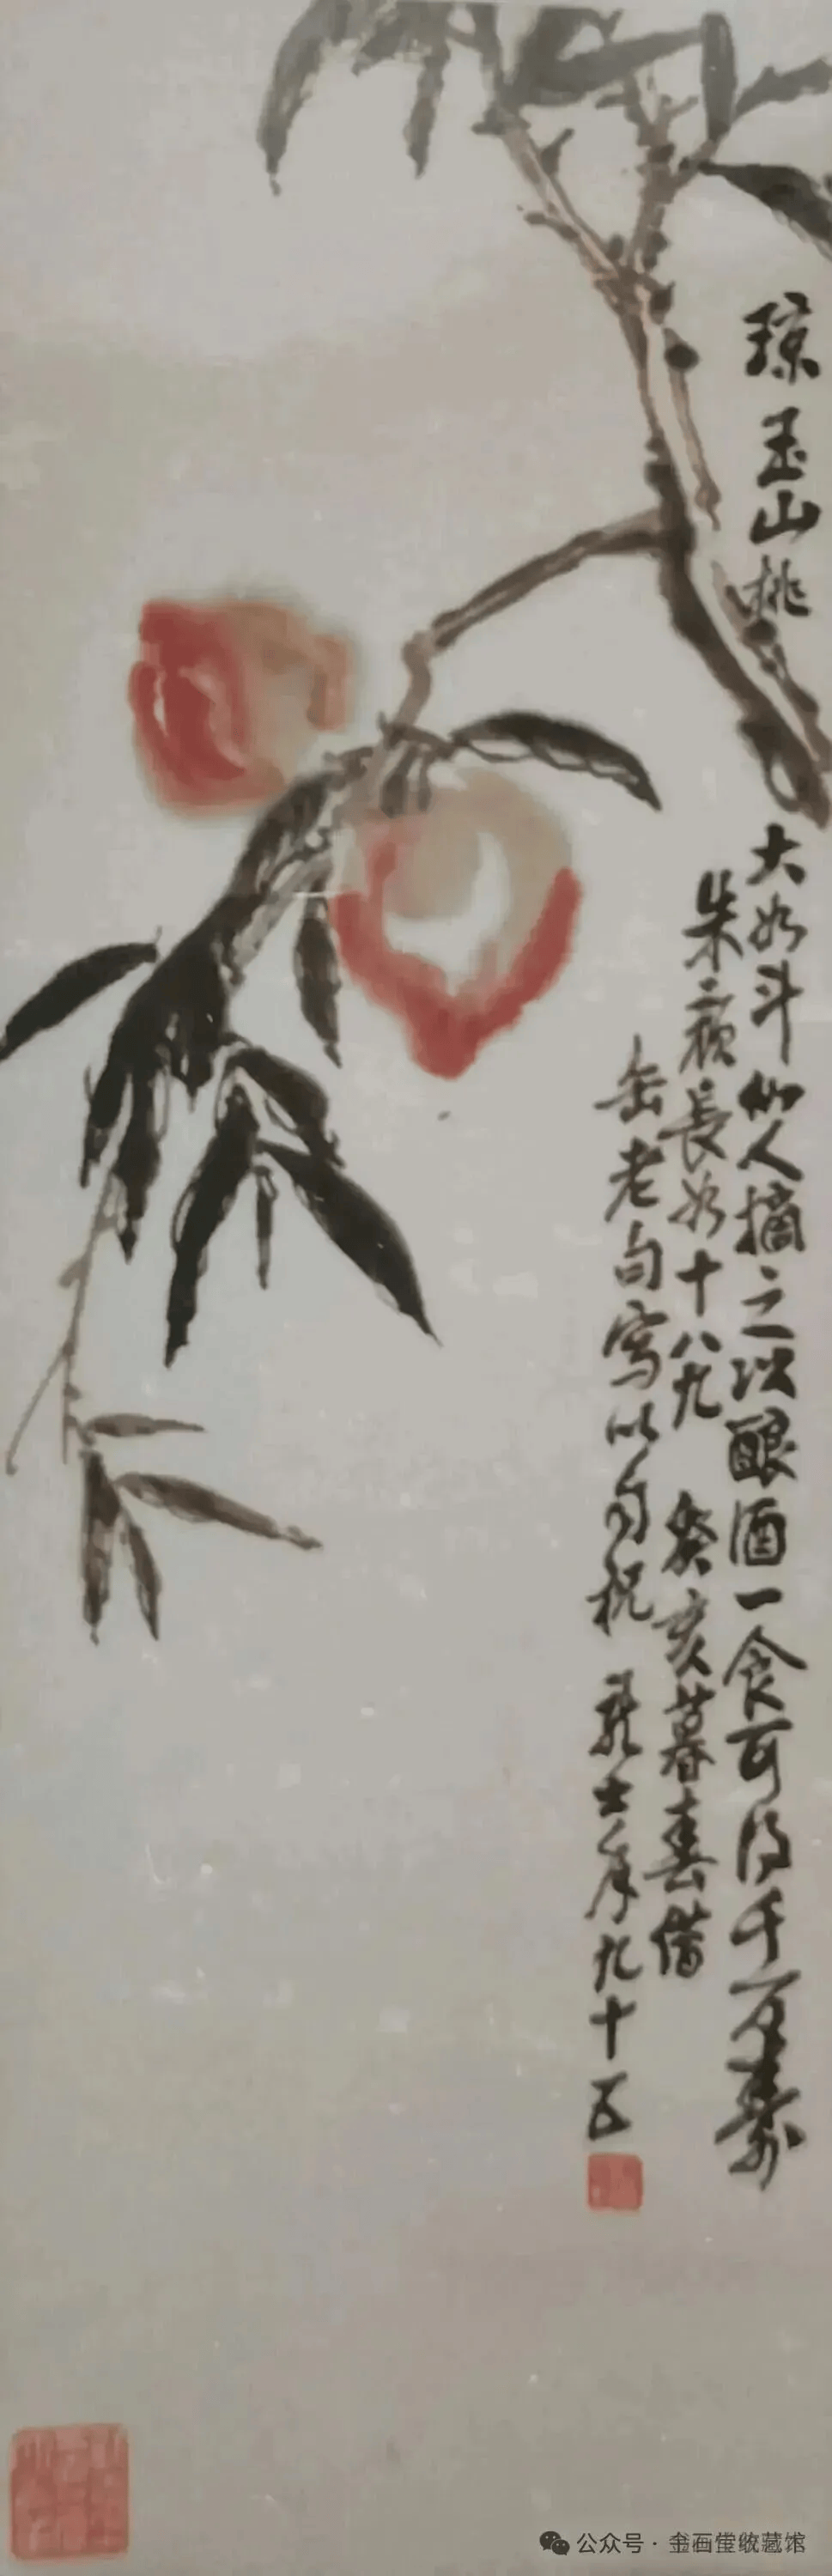 琼玉山桃大如斗仙人摘之以酿酒一食可得千万寿
朱颜长如十八九 癸亥暮春借
缶老句写以自祝 龙士年九十五
公众号·金石堂收藏馆